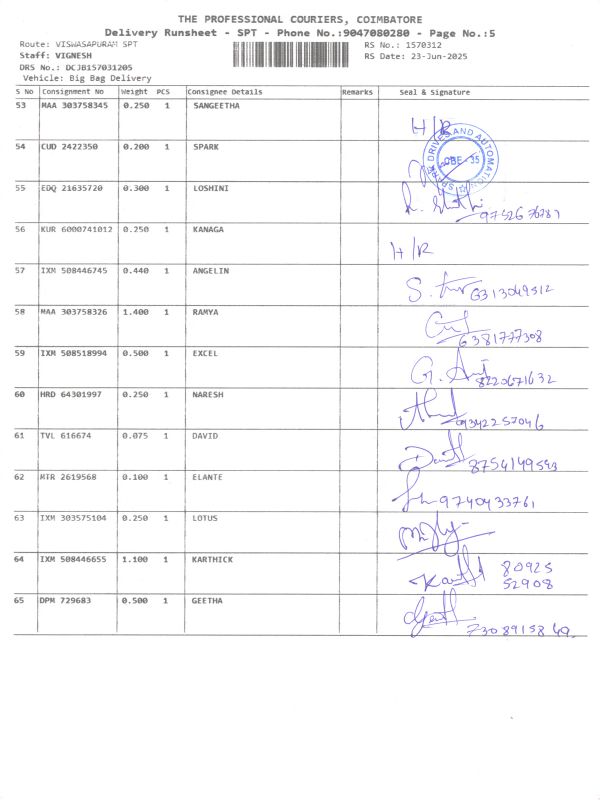 THE PROFESSIONAL COURIERS, COIMBATORE
Delivery Runsheet - SPT - Phone No.:9047080280 - Page No.:5
Route: VISWASAPURAM SPT RS No.: 1570312
Staff: VIGNESH RS Date: 23-Jun-2025
DRS No.: DCJB157031205
Vehicle: Big Bag Delivery
S No Consignment No Weight PCS Consignee Details Remarks Seal & Signature
53 MAA 303758345 0.250 1 SANGEETHA
H/R
54 CUD 2422350 0.200 1 SPARK
SPARK DRIVES AND AUTOMATION CBE - 35
55 EDQ 21635720 0.300 1 LOSHINI
9752676781
56 KUR 6000741012 0.250 1 KANAGA
H/R
57 IXM 508446745 0.440 1 ANGELIN
6313049512
58 MAA 303758326 1.400 1 RAMYA
6381777308
59 IXM 508518994 0.500 1 EXCEL
8220671632
60 HRD 64301997 0.250 1 NARESH
9342257046
61 TVL 616674 0.075 1 DAVID
8754149593
62 MTR 2619568 0.100 1 ELANTE
9740433761
63 IXM 303575104 0.250 1 LOTUS
64 IXM 508446655 1.100 1 KARTHICK
80925
52908
65 DPM 729683 0.500 1 GEETHA
7308915849